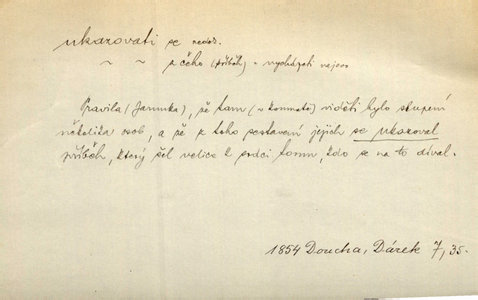 ukazovati se nedok.
~ ~ z čeho (příběh) = vycházeti najevo
Pravila (Jarunka), že tam (v komnatě) viděti bylo skupení
několika osob, a že z toho sestavení jejich se ukazoval
příběh, který šel velice k srdci tomu, kdo se na to díval.
1854 Doucha, Dárek 7, 35.